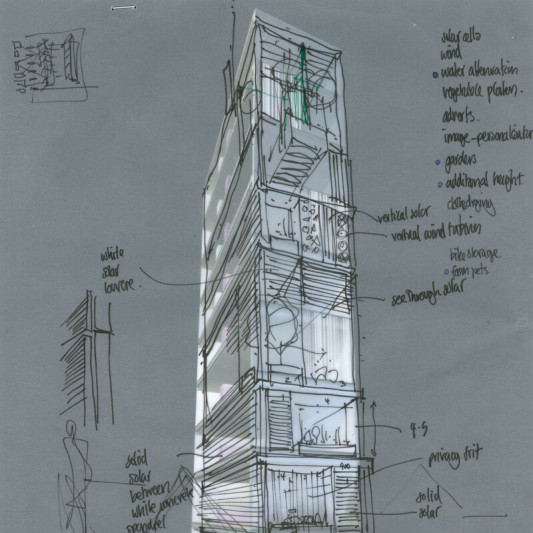 solar cells
wind
water attenuation
vegetable planters.
adverts.
image-personalisation
gardens
additional height
clothes drying
bike storage
farm pets
vertical solar
vertical wind turbines
see through solar
white
solar
louvre.
4-5
privacy frit
solid
solar
solid
solar
between
white concrete
spandrel